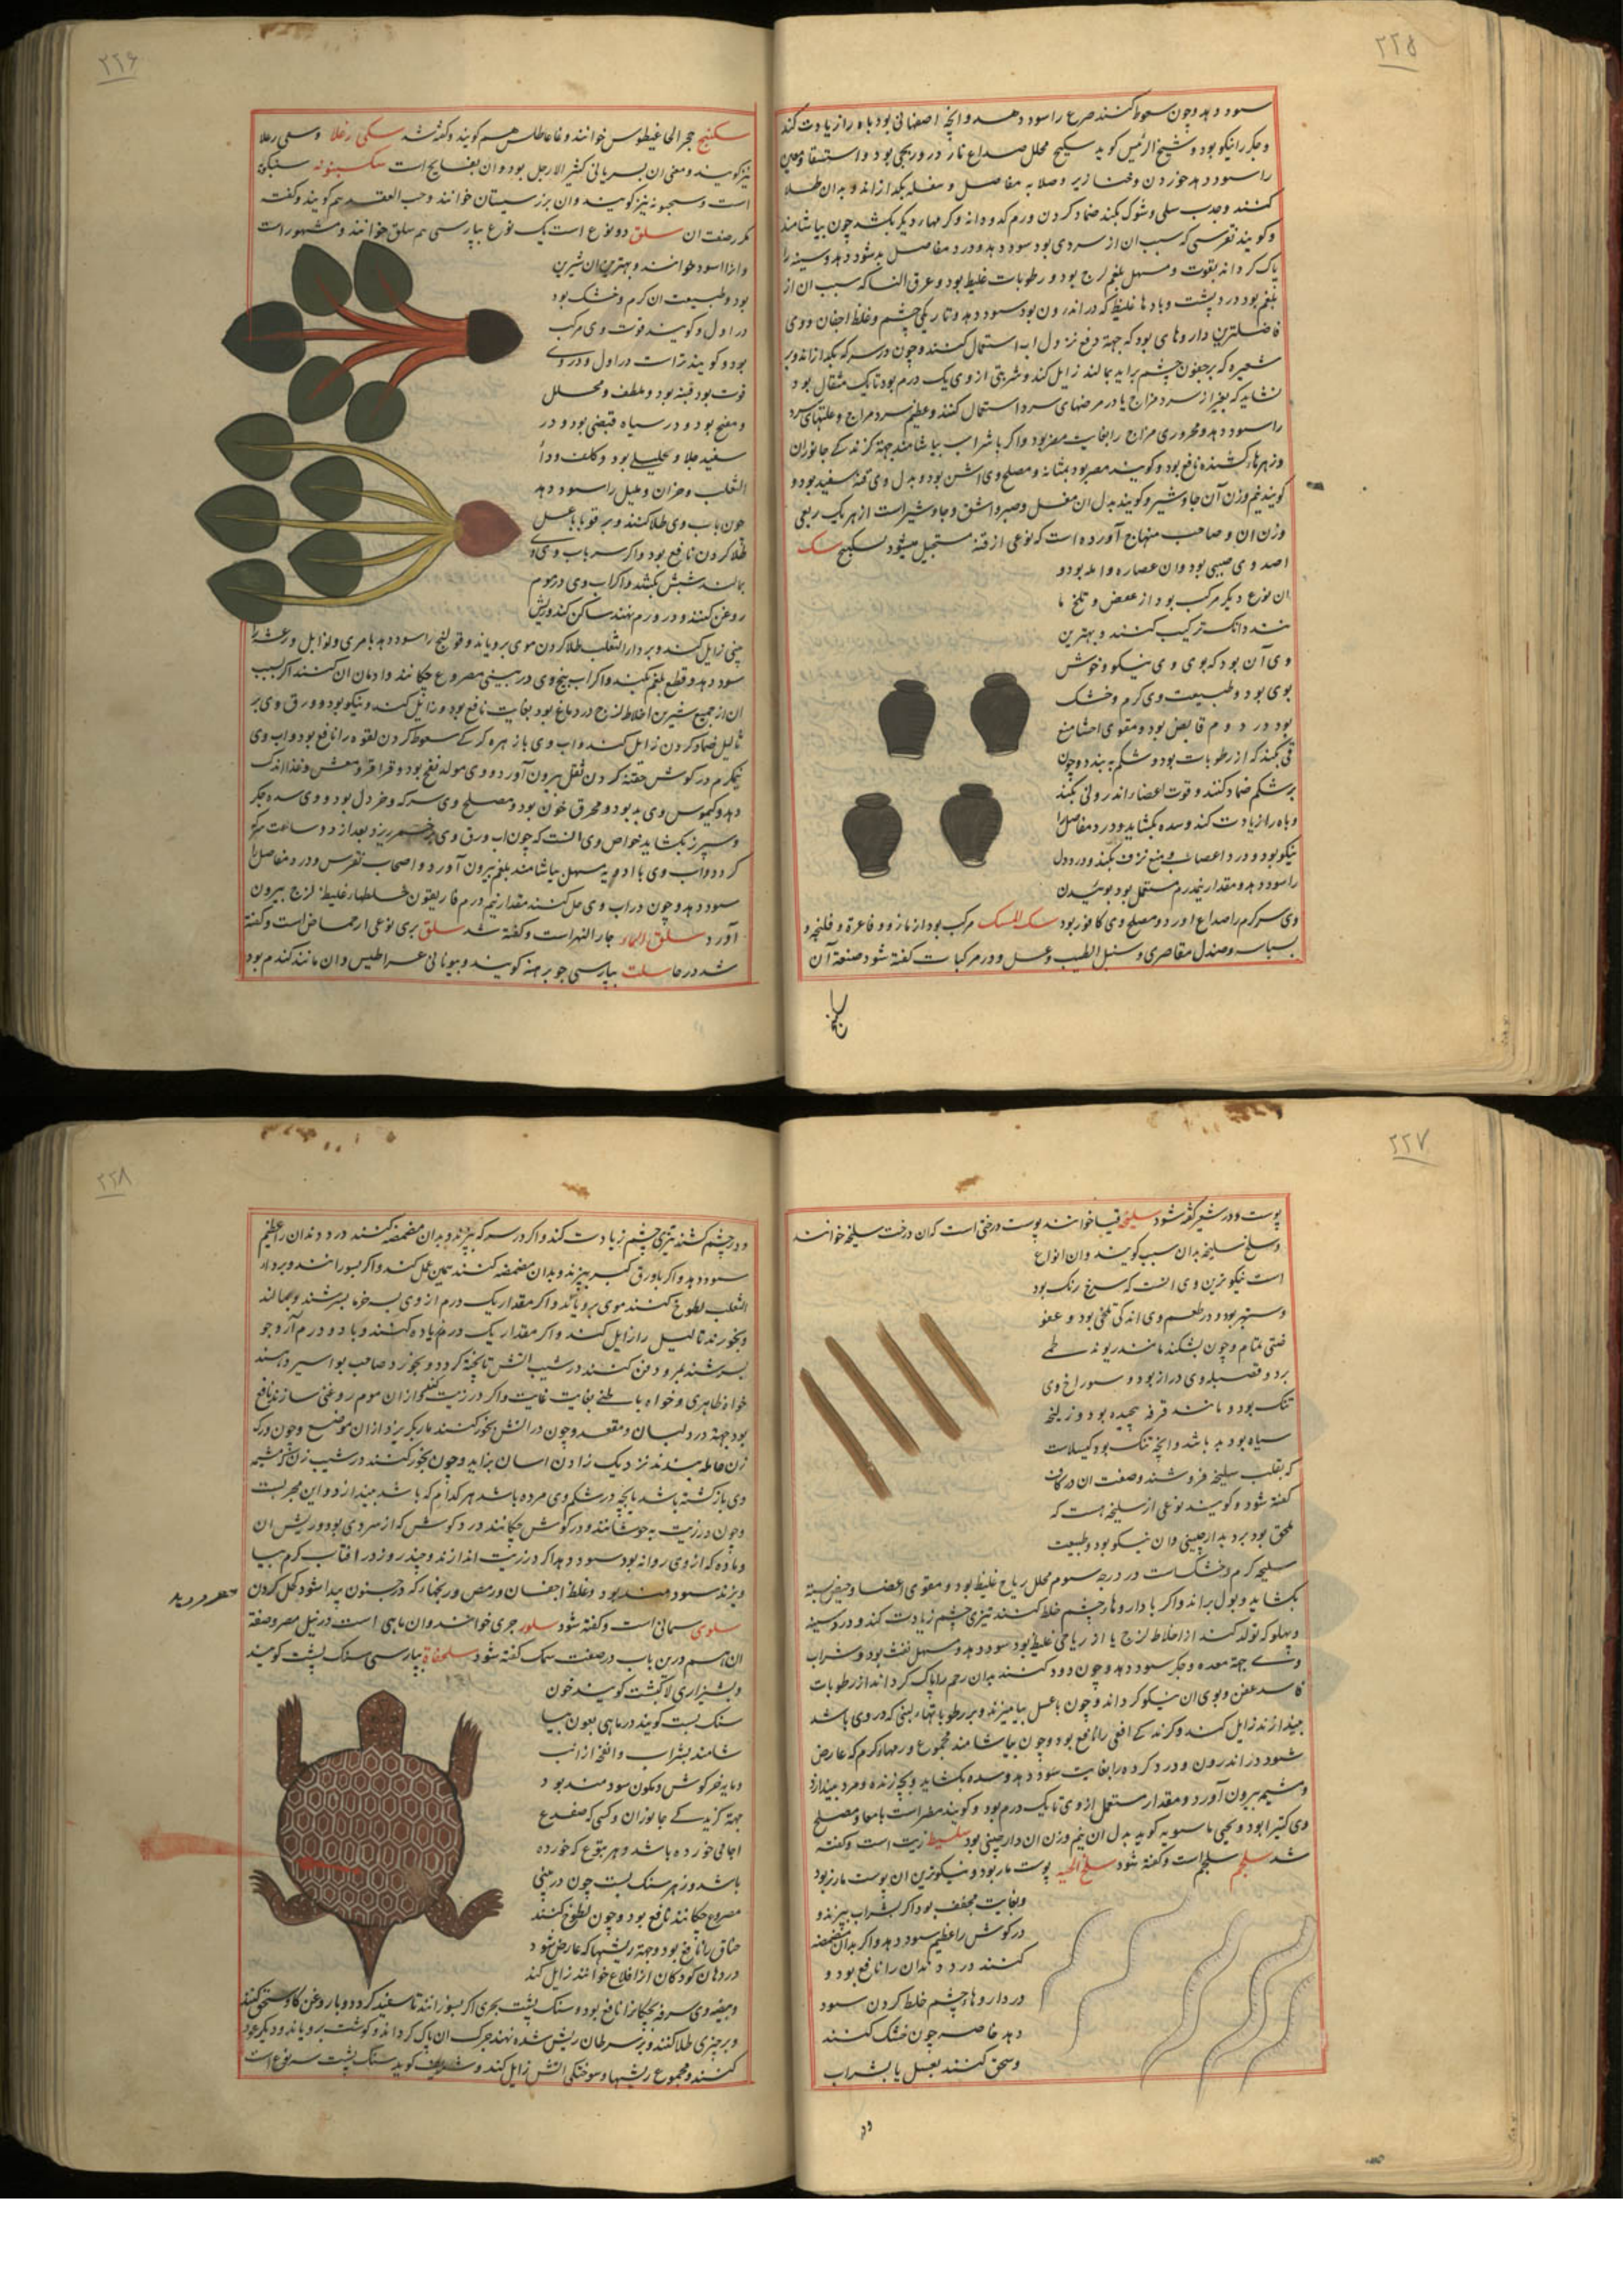 ۲۲۵
سود دهد وچون سعوط کنند صرع را سود دهد وانچه اصفهانی بود باه را زیادت کند
وجگر را نیکو بود وشیخ الرئیس کوید سکبینج محلل صداع بارد وریحی بود واستسقا
را سود دهد خوردن وخنازیر وصلابه مفاصل و بکدازاند و بدان طلا
کنند وجذب سلی وشوک بکند ضماد کردن ورم وکرمهاء دیکر بکشد چون بیاشامند
وکویند نقرسی که سبب ان از سردی بود سود دهد ودرد مفاصل سود دهد وسینه را
پاک کرداند بقوت ومسهل بلغم لزج بود ورطوبات غلیظ بود وعرق النسا که سبب ان از
بلغم بود درد پشت وبادهاء غلیظ که در اندرون بود سود دهد وتاریکی چشم وغلظ اجفان ووی
فاضلترین داروهای بود که جهة دفع نزول اب استعمال کنند وچون در سرکه بکدازاند وبر
شعیره که بر جفون چشم براید بمالند زایل کند وشربتی از وی یک درم بود تا یک مثقال بود و
نشاید که بغیر از سرد مزاج یا در مرضهای سرد استعمال کنند وعظیم سرد مزاج وعلتهای سرد
را سود دهد ومحروری مزاج را بغایت مضر بود واکر با شراب بیاشامند جهة کزندکی جانوران
وزهرهاء کشنده نافع بود وکویند مضر بود بمثانه ومصلح وی اشن بود وبدل وی قنه سفید بود و
کویند نیم وزن آن جاوشیر وکویند بدل ان مقل وصبر واشق وجاوشیر است از هر یک ربعی
وزن ان وصاحب منهاج آورده است که نوعی از قنه مستحیل میشود بسکبینج سک
اصد وی صینی بود وان عصاره وامله بود و
ان نوع دیکر مرکب بود از عفص وتلخ ما
نند دانک ترکیب کنند وبهترین
وی آن بود که بوی وی نیکو وخوش
بوی بود وطبیعت وی کرم وخشک
بود در دوم قابض بود ومقوی احشا منع
قی بکند که از رطوبات بود وشکم ببندد وچون
بر شکم ضماد کنند وقوت اعضاء اندرونی بکند
وباه را زیادت کند وسده بکشاید ودرد مفاصل را
نیکو بود ودرد اعصاب ومنع نزف بکند ودرد دل
را سود دهد ومقدار نیم درم مستعمل بود بوئیدن
وی سر کرم را صداع اورد ومصلح وی کافور بود سک المسک مرکب بود از مازو وفاغرة وفلنجه و
بسباسه وصندل مقاصری وسنبل الطیب وعسل ودر مرکبات کفته شود صنعة آن
۲۲۶
سکنج حجر الحاغیطوس خوانند وغاغاطلس هم کویند وکفته شد سکی رغلا وسی رعلا
نیز کویند ومعنی ان بسریانی کثیر الارجل بود وان بسفایج است سکسبنونه سنبکونه
است وسجبونه نیز کویند وان بزر سیستان خوانند وحب الفقد هم کویند وکفت
کر صفت ان سلق دو نوع است یک نوع بپارسی هم سلق خوانند ومشهور است
وانرا اسود خوانند وبهترین ان شیرین
بود وطبیعت ان کرم وخشک بود
در اول وکویند قوت وی مرکب
بود وکویند تر است در اول ودر وی
قوت بود قبضه بود وملطف ومحلل
ومفتح بود ودر سیاه قبضی بود ودر
سفید جلا وتحلیلی بود وکلف وداء
الثعلب وحزاز وثالیل را سود دهد
چون باب وی طلا کنند وبر قوبا با عسل
طلا کردن نافع بود واکر سر باب وی
بمالند شپش بکشد واکر اب وی در موم
روغن کنند ودر ورم نهند ساکن کند وریش
بینی زایل کند وبر داء الثعلب طلا کردن موی برویاند وقولنج را سود دهد بامری وتوابل ورعشه را
سود دهد وقطع بلغم بکند واکر اب بیخ وی در بینی مصروع چکانند وادمان ان کنند اکر سبب
ان از جمیع شیرین اخلاط لزج در دماغ بود بغایت نافع بود وزایل کند ونیکو بود وورق وی بر
ثالیل ضماد کردن زایل کند واب وی با زهره کرکی سعوط کردن لقوه را نافع بود واب وی
نیکرم در کوش حقنه کردن ثفل بیرون آورد ووی مولد نفخ بود وقراقر ومغص وغذا اندک
دهد وکیموس وی بد بود ومحرق خون بود ومصلح وی سرکه وخردل بود ووی سده جکر
وسپرز بکشاید خواص وی انست که چون اب ورق وی بر خمر ریزد بعد از دو ساعت سرکه
کردد واب وی با ادویه مسهل بیاشامند بلغم بیرون آورد واصحاب نقرس ودرد مفاصل را
سود دهد وچون در اب وی حل کنند مقدار نیم درم غاریقون خلطهاء غلیظ لزج بیرون
آورد سلق الماء جار النهر است وکفته شد سلق بری نوعی از حماض است وکفته
شد در حا سلت بپارسی جو برهنه کویند وبیونانی عراطیس وان مانند کندم بود
۲۲۷
پوست ودر شیر کفته شود سلیخه قیسا خوانند پوست درختی است که ان درخت سلیخه خوانند
وسلخ سلیخه بدان سبب کویند وان انواع
است نیکوترین وی انست که سرخ رنک بود
وستبر بود ودر طعم وی اندکی تلخی بود وعفو
ضتی تمام وچون بشکند مانند ریوند طعمی
برد وقصبه وی دراز بود وسوراخ وی
تنک بود ومانند قرفه پیچیده بود وزلیخه
سیاه بود بد باشد وانچه تنک بود کسیلاست
که بقلب سلیخه فروشند وصفت ان در کاف
کفته شود وکویند نوعی از سلیخه هست که
ملحق بود بدارچینی وان نیکو بود وطبیعت
سلیخه کرم وخشکست در درجه سوم محلل ریاح غلیظ بود ومقوی اعضا وحیض بسته
بکشاید وبول براند واکر با داروهاء چشم خلط کنند تیزی چشم زیادت کند ودرد سینه
وپهلو که تولد کند از اخلاط لزج یا از ریاحی غلیظ بود سود دهد ومسهل نفث بود وشراب
وی جهة معده وجکر سود دهد وچون دود کنند بدان رحم را پاک کرداند از رطوبات
فاسد عفن وبوی ان نیکو کرداند وچون با عسل بیامیزند وبر رطوبتهاء لبنی که در روی باشد
بیندازند زایل کند وکزندکی افعی را نافع بود وچون بیاشامند مجموع ورمهاء کرم که عارض
شود در اندرون ودرد کرده را بغایت سود دهد وسده بکشاید وبچه زنده ومرده بیندازد
ومشیمه بیرون آورد ومقدار مستعمل از وی تا یک درم بود وکویند مضر است بامعا ومصلح
وی کتیرا بود ویحیی ماسویه کوید بدل ان نیم وزن ان دارچینی بود سلیط زیت است وکفته
شد سلجم شلجم است وکفته شود سلخ الحیه پوست مار بود ونیکوترین ان پوست مار نر بود
وبغایت مجفف بود اکر بشراب بپزند و
در کوش را عظیم سود دهد واکر بدان مضمضه
کنند درد دندان را نافع بود و
در داروهاء چشم خلط کردن سود
دهد خاصه چون خشک کنند
وسحق کنند بعسل یا بشراب
ودر
۲۲۸
ودر چشم کشند تیزی چشم زیادت کند واکر در سرکه بپزند وبدان مضمضه کنند درد دندان را عظیم
سود دهد واکر با ورق کبر بپزند وبدان مضمضه کنند همین عمل کند واکر بسوزانند وبر داء
الثعلب لطوخ کنند موی برویاند واکر مقدار یک درم از وی به خرما بسرشند وبمالند
وبخورند ثالیل را زایل کند واکر مقدار یک درم پاده کنند وبا دو درم آرد جو
بسرشند ودفن کنند در شیب اتش تا پخته کردد وبخورد صاحب بواسیر دهند
خواه ظاهری وخواه باطنی بغایت غایت واکر در زیت کنند واز ان موم روغنی سازند نافع
بود جهة درد لبان ومقعد وچون در اتش بخور کنند مار بکریزد از ان موضع وچون ورکه
زن حامله بندند نزدیک زادن اسان بزاید وچون بخور کنند در شیب زن که مشیمه
وی باز کشته باشد یا بچه در شکم وی مرده باشد هر کدام که باشد بیندازد واین مجربست
وچون در زیت بجوشانند ودر کوش چکانند درد کوش که از سردی بود وریش ان
وماده که از وی روانه بود سود دهد اکر در زیت اندازند وچند روز در افتاب کرم بیا
ویزند سودمند بود وغلظ اجفان ورمص ورنجهاء که در جفون پیدا شود کحل کردن
سلوی سمانی است وکفته شود سلور جری خوانند وان ماهی است در نیل مصر وصفة
ان هم درین باب در صفت سمک کفته شود سلحفاة بپارسی سنک پشت کویند
وبشیرازی لاکپشت کویند خون
سنک پشت کویند در ماهی بعون بیا
شامند بشراب وانفحة ارنب
ومایه خرکوش وکمون سودمند بود
جهة کزیدکی جانوران وکسی که ضفدع
اجامی خورده باشد وهر یتوع که خورده
باشد وزهره سنک پشت چون در بینی
مصروع چکانند نافع بود وچون لطوخ کنند
خناق را نافع بود وجهة ریشها که عارض شود
در دهان کودکان انرا قلاع خوانند زایل کند
وبیضه وی سرفه بچکانرا نافع بود وسنک پشت بحری اکر بسوزانند تا سفید کردد وبا روغن کاو سحق کنند
وبر چیزی طلا کنند وبر سرطان ریش شده نهند چرک ان پاک کرداند وکوشت برویاند ودیکر عود
کنند ومجموع ریشها وسوختکی اتش زایل کند وشریف کوید سنک پشت سه نوع است